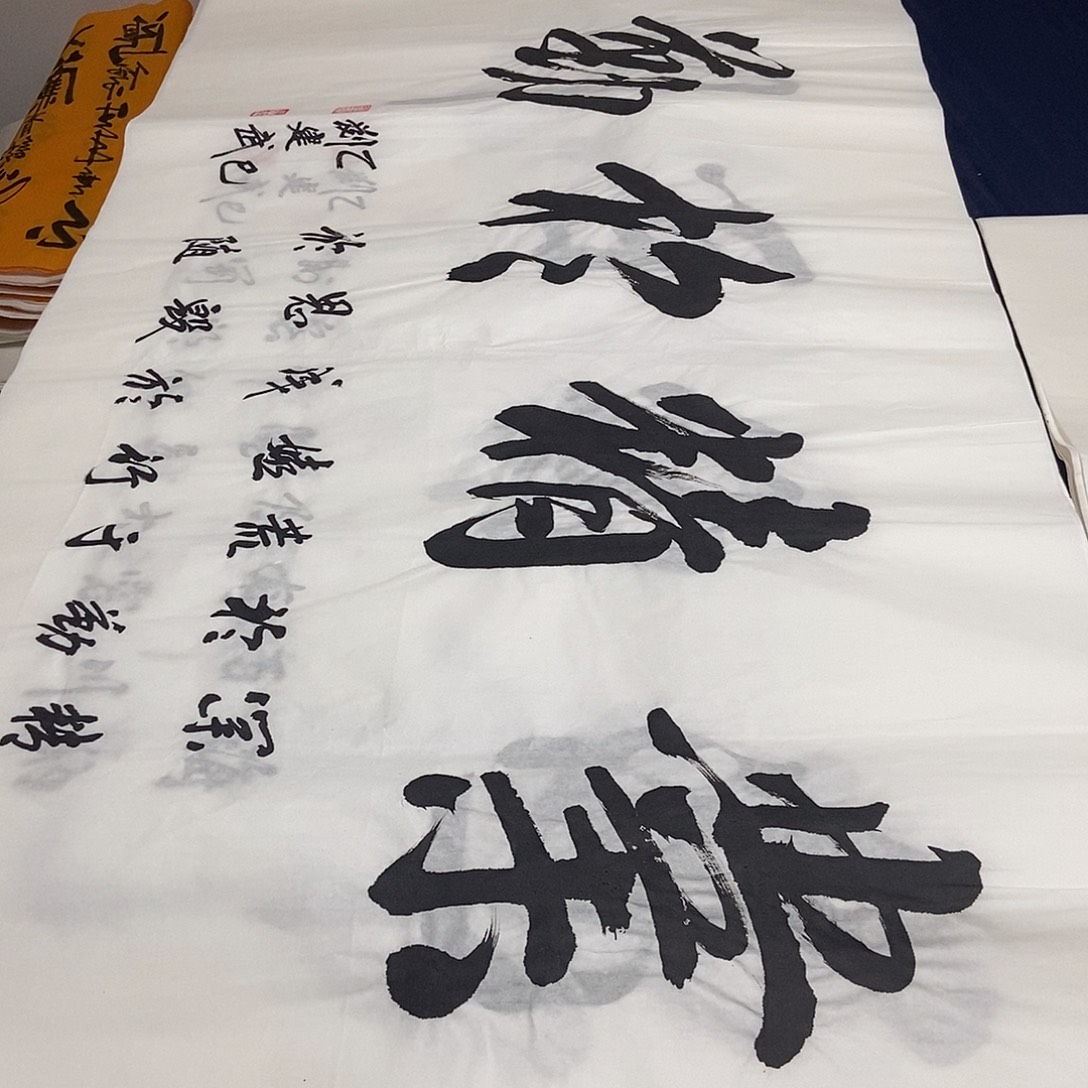 業精於勤
業精
於勤
荒于
嬉行
成於
思毀
於隨
乙巳
劉雙武